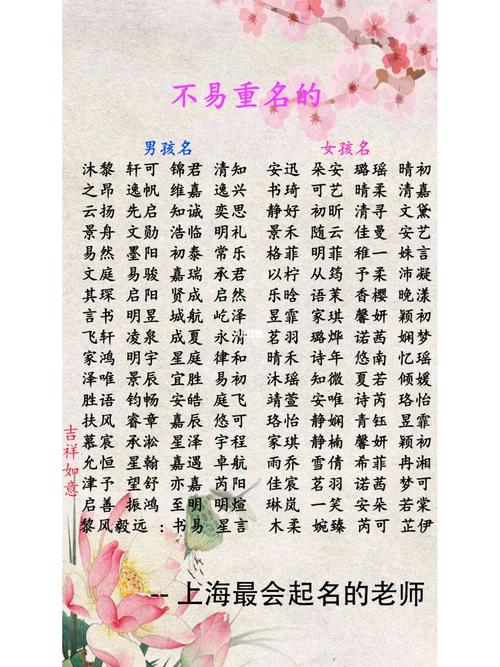 不易重名的
男孩名 女孩名
沐黎 轩可 锦君 清知 安迅 朵安 璐瑶 晴初
之昂 逸帆 维嘉 逸兴 书琦 可艺 晴柔 清嘉
云扬 先启 知诚 奕思 静好 初昕 清寻 文黛
景舟 文勋 浩临 明礼 景禾 随云 佳曼 安艺
易然 墨阳 初泰 常乐 格菲 明菲 稚一 姝言
文庭 易骏 嘉瑞 承君 以柠 从筠 予柔 沛凝
其琛 启阳 贤成 启然 乐晗 语茉 香樱 晚漾
言书 明昱 城航 屹泽 昱霏 家琪 馨妍 颖初
飞轩 凌泉 成夏 永清 茗羽 璐烨 诺茜 娴梦
家鸿 明宇 星庭 律和 晴禾 诗年 悠南 忆瑶
泽唯 景辰 宜胜 易初 沐瑶 知微 夏若 倾媛
胜语 钧畅 安皓 庭飞 靖萱 安唯 诗芮 珞怡
扶风 睿章 嘉辰 悠可 珞怡 静娴 青钰 昱霏
慕宸 承淞 星泽 宇程 家琪 静楠 馨妍 颖初
允恒 星翰 嘉遇 卓航 雨乔 雪倩 希菲 冉湘
津予 望舒 亦嘉 芮阳 佳宸 茗羽 诺茜 梦可
启善 振鸿 至明 明煊 琳岚 一笑 安朵 若棠
黎风毅远：书易 星言 木柔 婉臻 芮可 芷伊
吉祥如意
-- 上海最会起名的老师